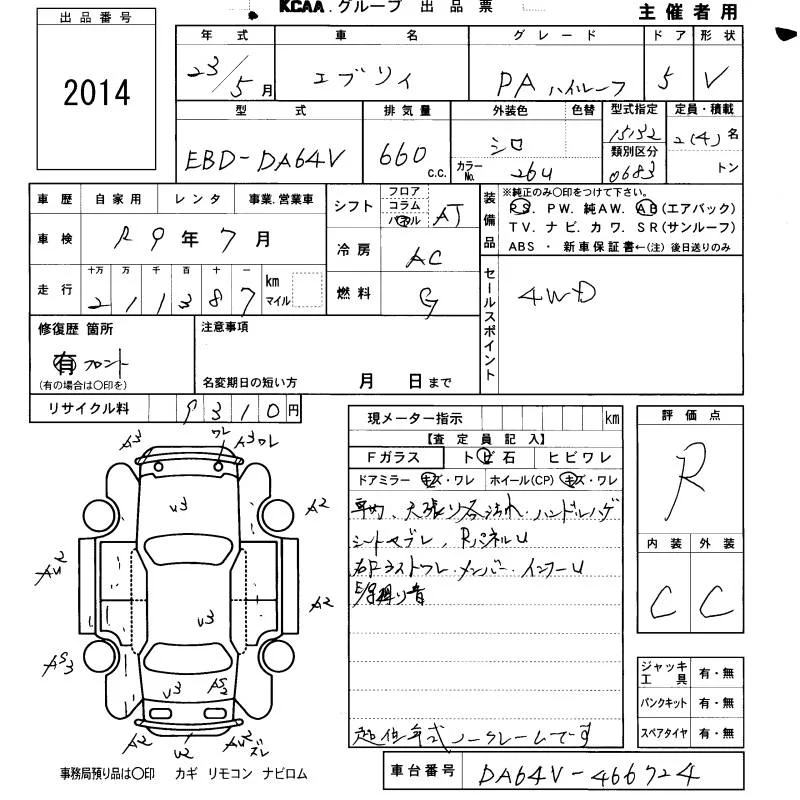 KCAA.グループ 出品票
主催者用
出品番号
2014
年式 車名 グレード ドア 形状
23/5月 エブリイ PA ハイルーフ 5 V
型式 排気量 外装色 色替 型式指定 定員・積載
EBD-DA64V 660 c.c. シロ カラーNo. 26U 15152 2(4)名
類別区分
0683 トン
車歴 自家用 レンタ 事業.営業車
車検 R9年7月
走行 十万 万 千 百 十 一
2 1 1 3 8 7 km マイル
シフト フロア コラム パネル AT
冷房 AC
燃料 G
装備品
※純正のみ〇印をつけて下さい。
PS. PW. 純AW. AB(エアバック)
TV. ナビ. カワ. SR(サンルーフ)
ABS ・ 新車保証書←(注)後日送りのみ
セールスポイント
4WD
修復歴 箇所
有 フロント
(有の場合は〇印を)
注意事項
名変期日の短い方 月 日まで
リサイクル料 9310円
現メーター指示 km
【査定員記入】
Fガラス トビ石 ヒビワレ
ドアミラー キズ・ワレ ホイール(CP) キズ・ワレ
車内、天張り各汚れ・ハンドルハゲ
シートヤブレ、RパネルU
右Fラストワレ・メンバー・インナーU
評価点
R
内装 外装
C C
ジャッキ工具 有・無
パンクキット 有・無
スペアタイヤ 有・無
A3 ワレ A3ワレ
V3
A2
AU2
A2
V3
AS3
V3
A2
U2
AU2 ズレ
超低年式ノークレームです
事務局預り品は〇印 カギ リモコン ナビロム
車台番号 DA64V-466724